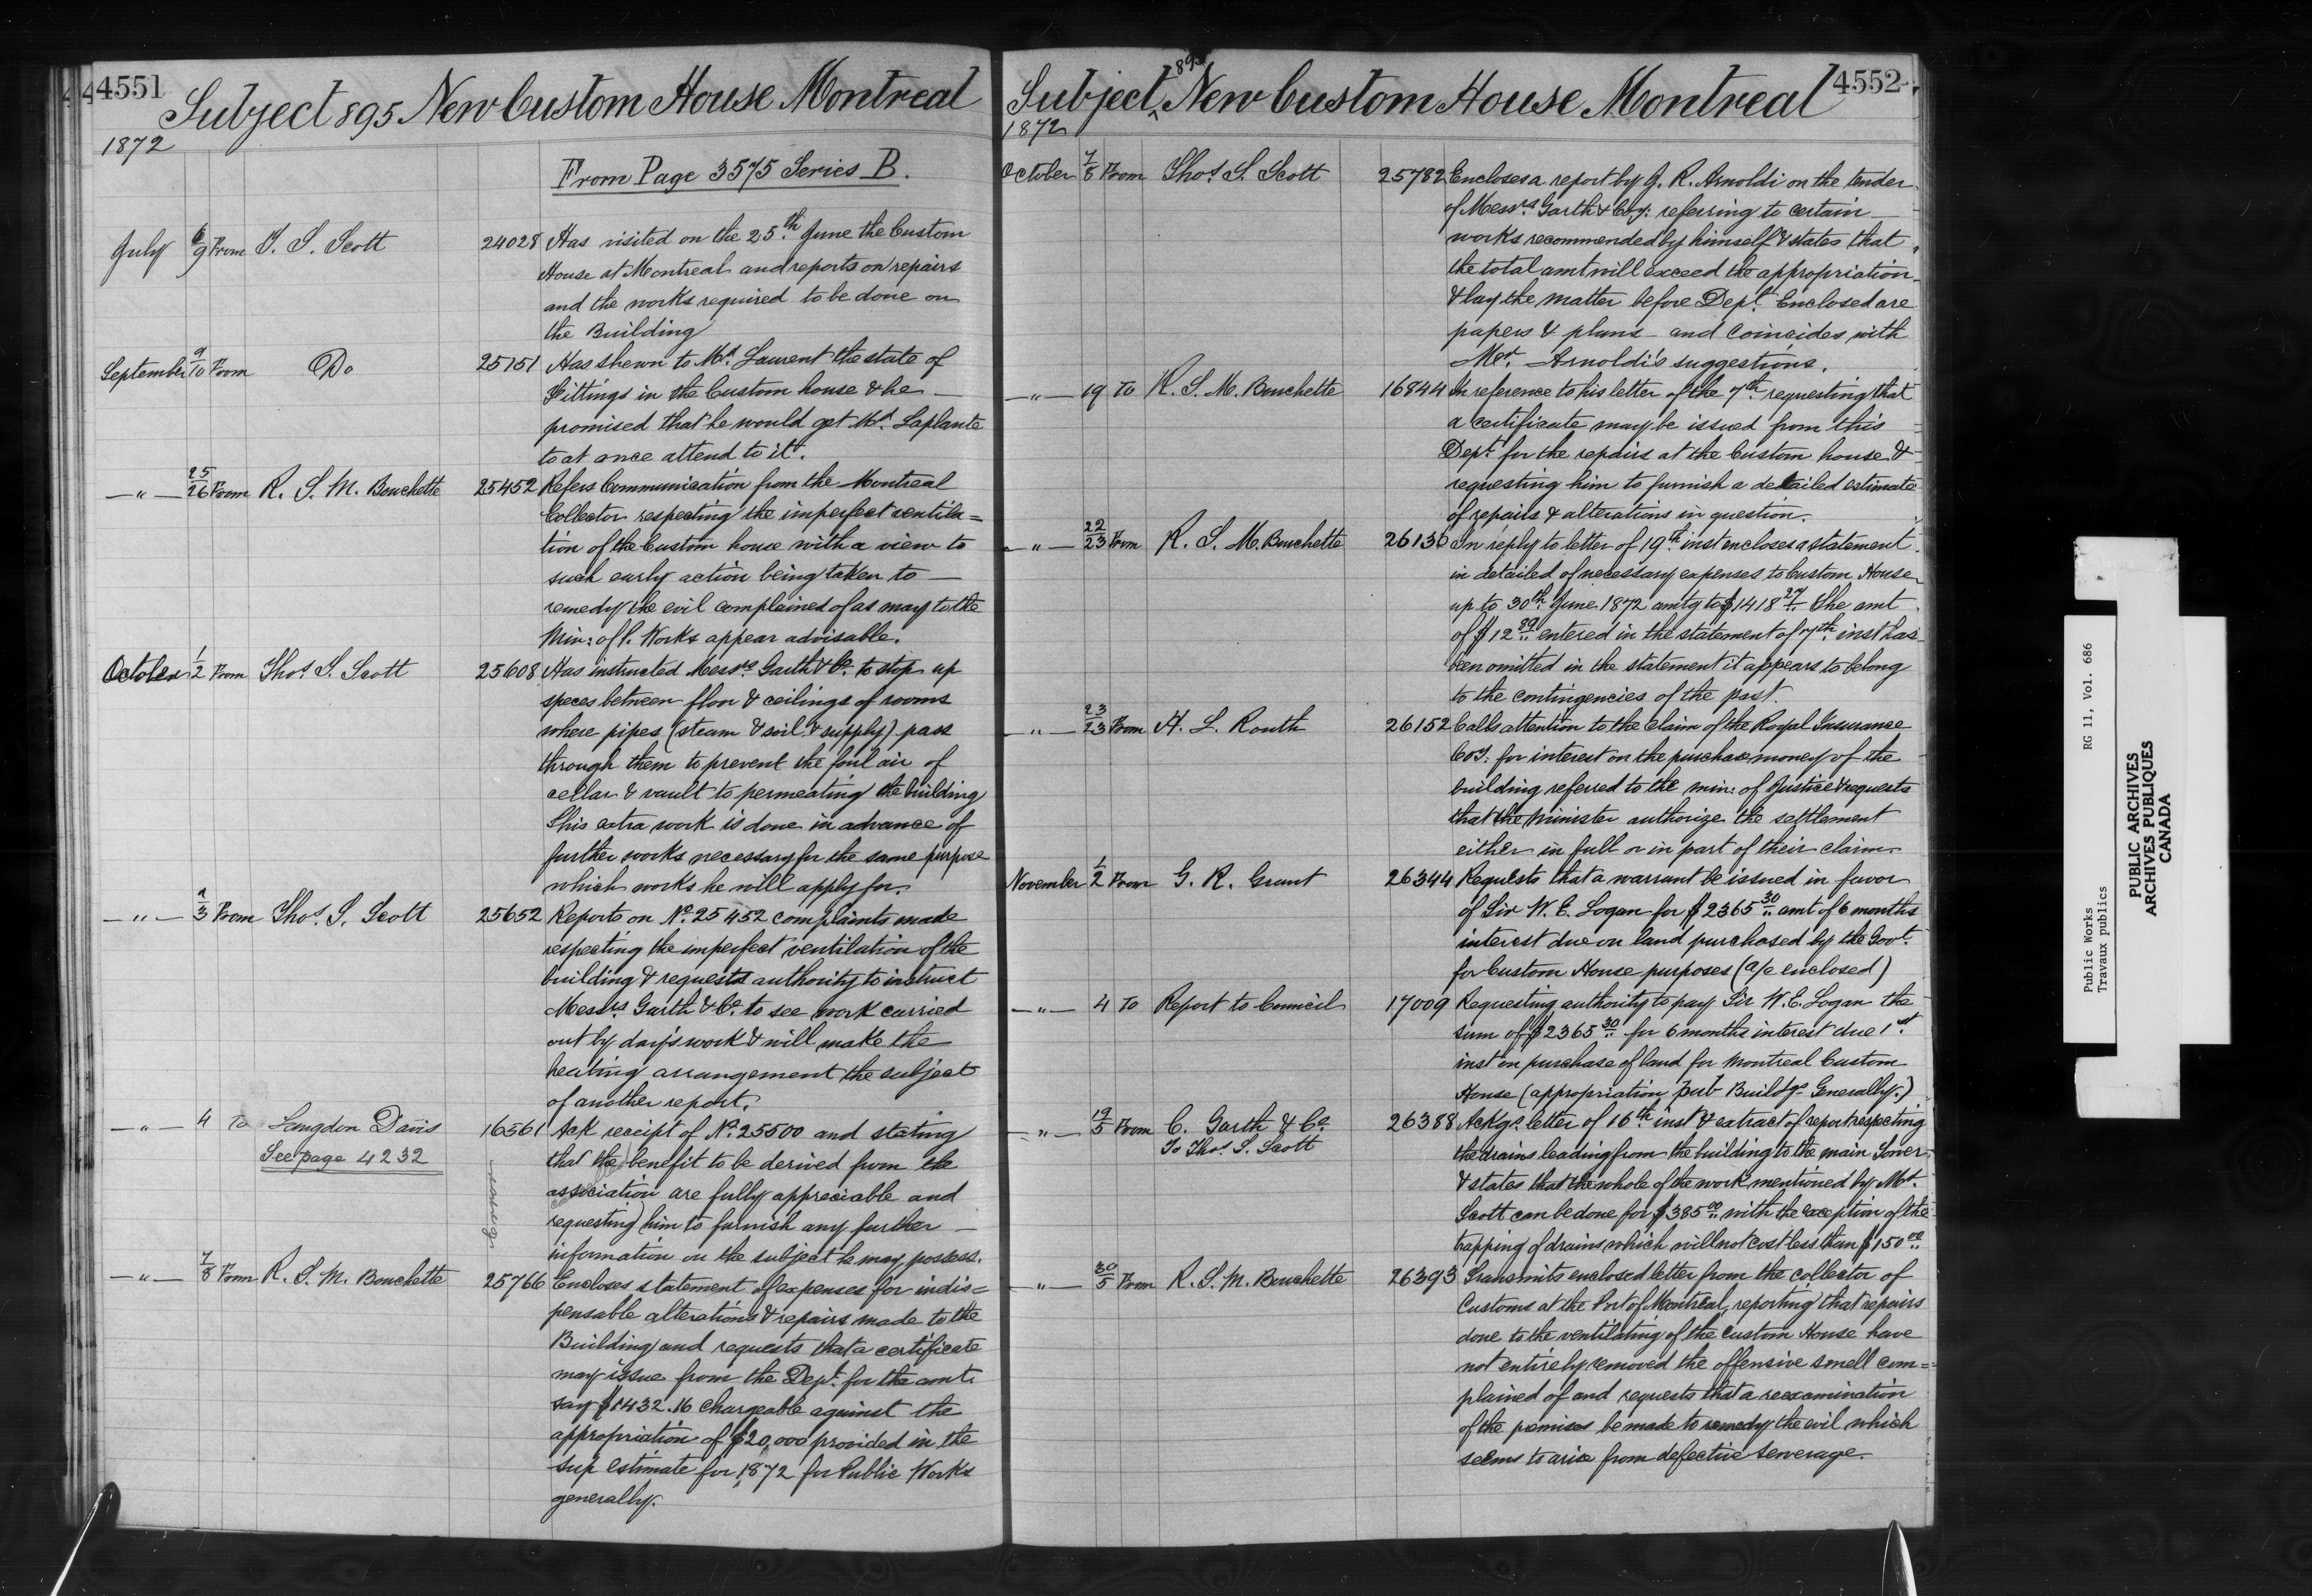 4551
Subject 895 New Custom House Montreal
1872
From Page 3575 Series B.
July 6/9 From T. S. Scott 24028 Has visited on the 25th June the Custom
House at Montreal and reports on repairs
and the works required to be done on
the Building
September 9/10 From Do 25151 Has shewn to Mr. Laurent the state of
Fittings in the Custom house & he
promised that he would get Mr. Laplante
to at once attend to it.
—"— 25/26 From R. S. M. Bouchette 25452 Refers Communication from the Montreal
Collector respecting the imperfect ventila=
tion of the Custom house with a view to
such early action being taken to
remedy the evil complained of as may to the
Min: of P. Works appear advisable.
October 1/2 From Thos. S. Scott 25608 Has instructed Messrs. Garth & Co. to stop up
speces between floor & ceilings of rooms
where pipes (steam & soil & supply) pass
through them to prevent the foul air of
cellar & vault to permeating the building
This extra work is done in advance of
further works necessary for the same purpose
which works he will apply for.
—"— 2/3 From Thos. S. Scott 25652 Reports on No. 25452 complaints made
respecting the imperfect ventilation of the
building & requests authority to instruct
Messrs Garth & Co. to see work carried
out by day's work & will make the
heating arrangement the subject
of another report.
—"— 4 To Langdon Davis 16561 Ack receipt of No. 25500 and stating
See page 4232 that the benefit to be derived from the
association are fully appreciable and
requesting him to furnish any further
information on the subject he may possess.
—"— 7/8 From R. S. M. Bouchette 25766 Encloses statement of expenses for indis=
pensable alterations & repairs made to the
Building and requests that a certificate
may issue from the Dept. for the amt.
say $1432.16 chargeable against the
appropriation of $20,000 provided in the
sup estimate for 1872 for Public Works
generally.
4552
Subject 895 New Custom House Montreal
1872
October 7/8 From Thos. S. Scott 25782 Encloses a report by J. R. Arnoldi on the tender
of Messrs. Garth & Coy: referring to certain
works recommended by himself & states that
the total amt will exceed the appropriation
& lay the matter before Dept. Enclosed are
papers & plans and coincides with
Mr. Arnoldi's suggestions.
—"— 19 To R. S. M. Bouchette 16844 In reference to his letter of the 7th requesting that
a certificate may be issued from this
Dept. for the repairs at the Custom house &
requesting him to furnish a detailed estimate
of repairs & alterations in question.
—"— 22/23 From R. S. M. Bouchette 26136 In reply to letter of 19th inst encloses a statement
in detailed of necessary expenses to Custom House
up to 30th June 1872 amtg to $1418 27 The amt
of $12 89 entered in the statement of 7th inst has
been omitted in the statement it appears to belong
to the contingencies of the past.
—"— 23/23 From H. L. Routh 26152 Calls attention to the Claim of the Royal Insurance
Coy: for interest on the purchase money of the
building referred to the min: of Justice & requests
that the minister authorize the settlement
either in full or in part of their claim.
November 1/2 From G. R. Grant 26344 Requests that a warrant be issued in favor
of Sir W. E. Logan for $2365 30 amt of 6 months
interest due on land purchased by the Govt.
for Custom House purposes (a/c enclosed)
—"— 4 To Report to Council 17009 Requesting authority to pay Sir W. E. Logan the
sum of $2365 30 for 6 months interest due 1st
inst on purchase of land for Montreal Custom
House (appropriation Pub Buildgs Generally.)
—"— 19/5 From C. Garth & Co 26388 Ackgs. letter of 16th inst & extract of report respecting
To Thos. S. Scott the drains leading from the building to the main Sewer
& states that the whole of the work mentioned by Mr.
Scott can be done for $385 00 with the exception of the
trapping of drains which will not cost less than $150 00
—"— 30/5 From R. S. M. Bouchette 26393 Transmits enclosed letter from the collector of
Customs at the Port of Montreal, reporting that repairs
done to the ventilating of the Custom House have
not entirely removed the offensive smell com=
plained of and requests that a reexamination
of the premises be made to remedy the evil which
seems to arise from defective sewerage.
Public Works RG 11, Vol. 686
Travaux publics
PUBLIC ARCHIVES
ARCHIVES PUBLIQUES
CANADA